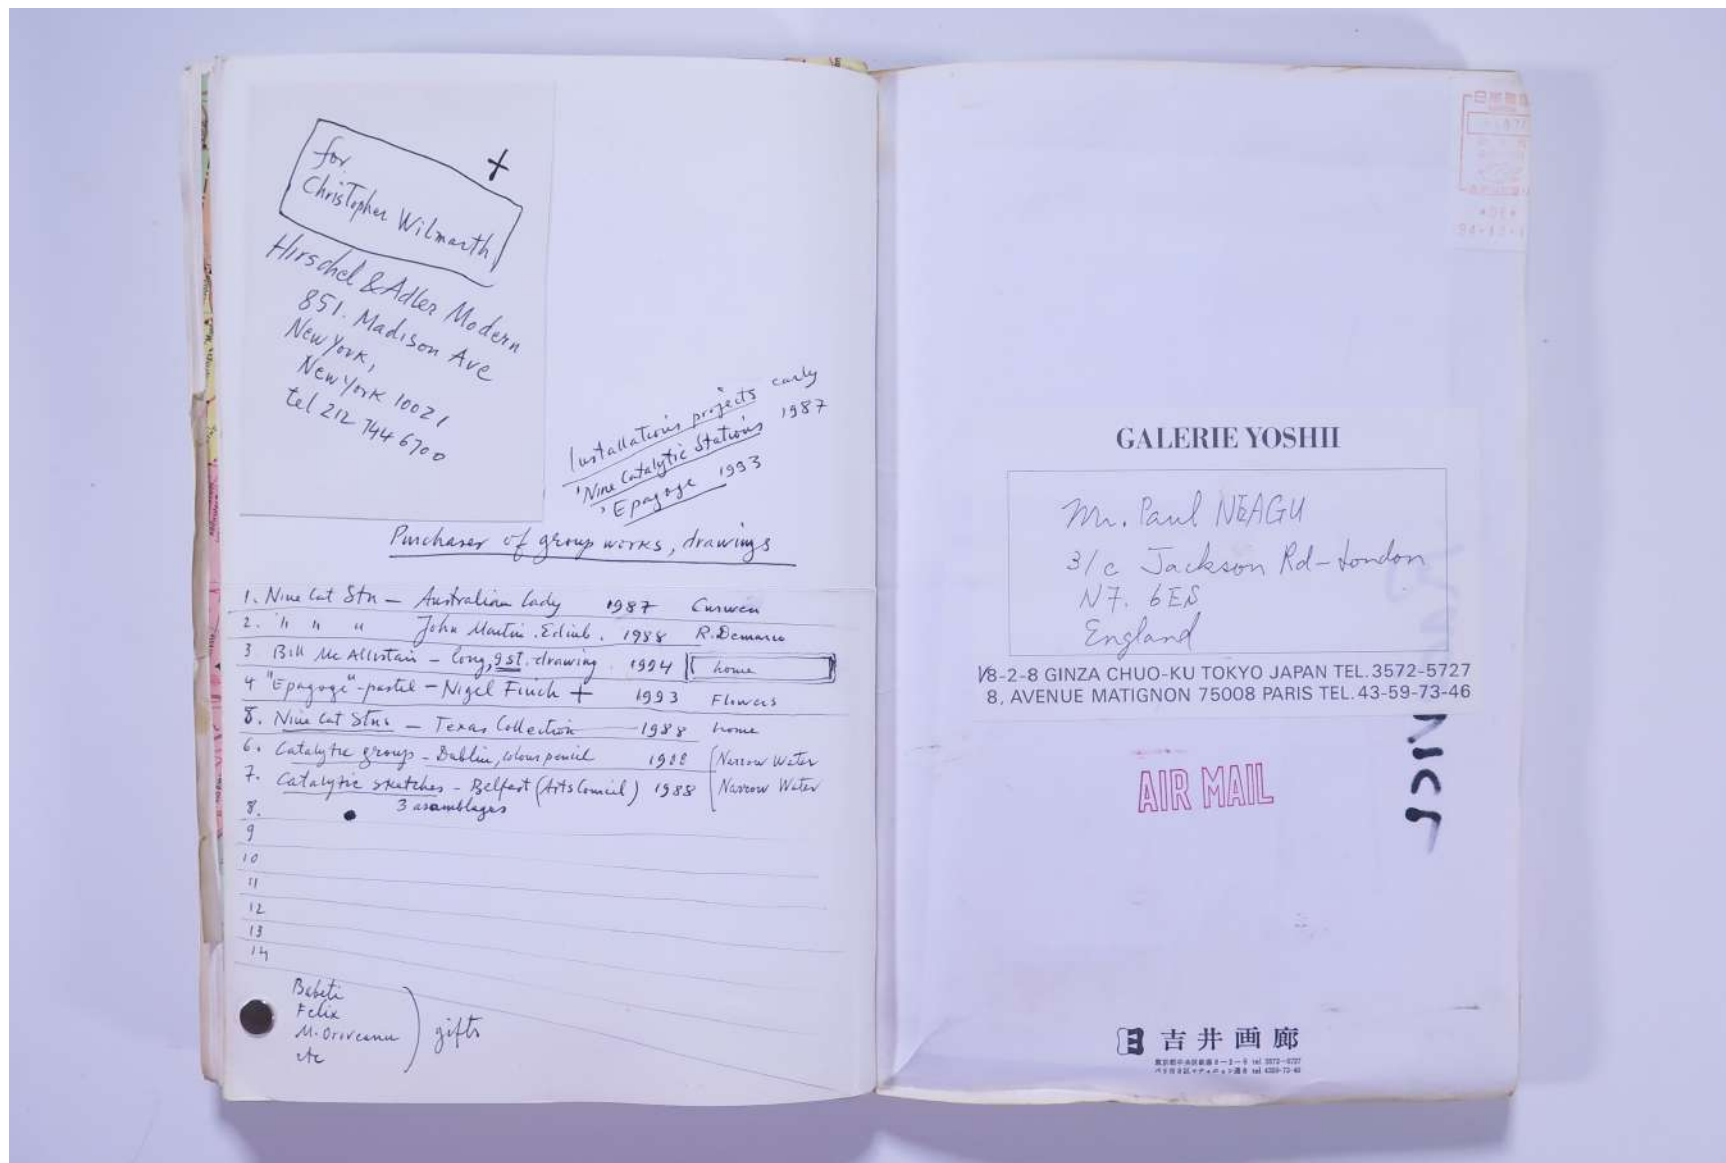 for
Christopher Wilmarth
+
Hirschel & Adler Modern
851. Madison Ave
New York,
New York 10021
tel 212 744 6700
Installations projects early
'Nine Catalytic Stations 1987
'Epagoge 1993
Purchaser of group works, drawings
1. Nine Cat Stn – Australian lady 1987 Curwen
2. " " " John Martin. Edinb. 1988 R. Demarco
3 Bill Mc Allistair – long, 9 st. drawing 1994 home
4 "Epagoge" - pastel – Nigel Finch + 1993 Flowers
5. Nine Cat Stns – Texas Collection 1988 home
6. Catalytic group – Dublin, colour pencil 1988 Narrow Water
7. Catalytic sketches – Belfast (Arts Council) 1988 Narrow Water
8. 3 asamblages
9
10
11
12
13
14
Bebeti
Felix
M. Oroveanu
etc
gifts
GALERIE YOSHII
Mr. Paul NEAGU
31/c Jackson Rd – London
N7. 6ES
England
8-2-8 GINZA CHUO-KU TOKYO JAPAN TEL. 3572-5727
8, AVENUE MATIGNON 75008 PARIS TEL. 43-59-73-46
AIR MAIL
吉井画廊